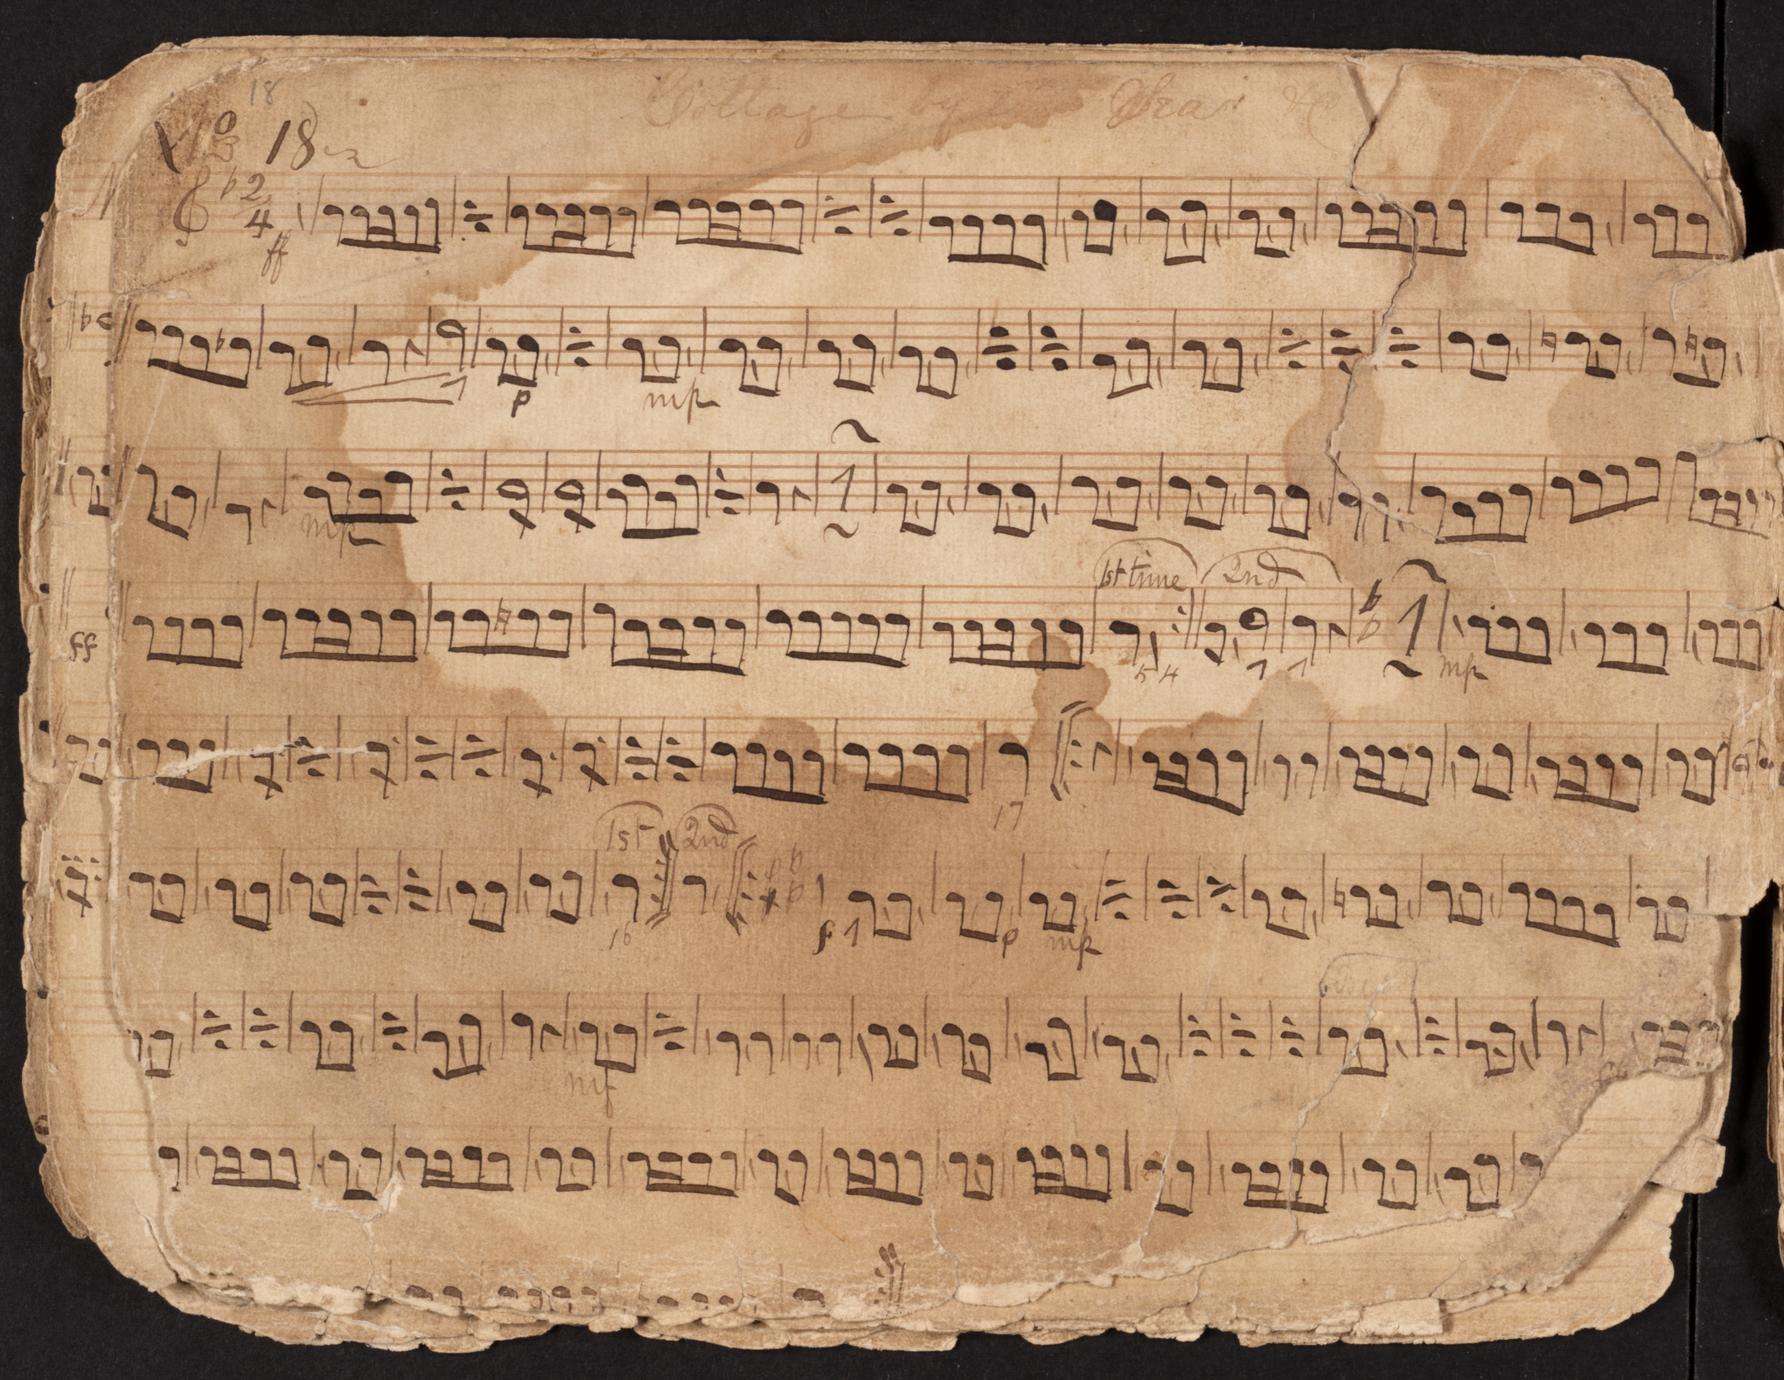 18
Cottage by the Sea
No 18
2
4
ff
p mp
mp
1st time 2nd
ff 5 4 1 1 mp
17
1st 2nd
16 f 1 p mp
mf